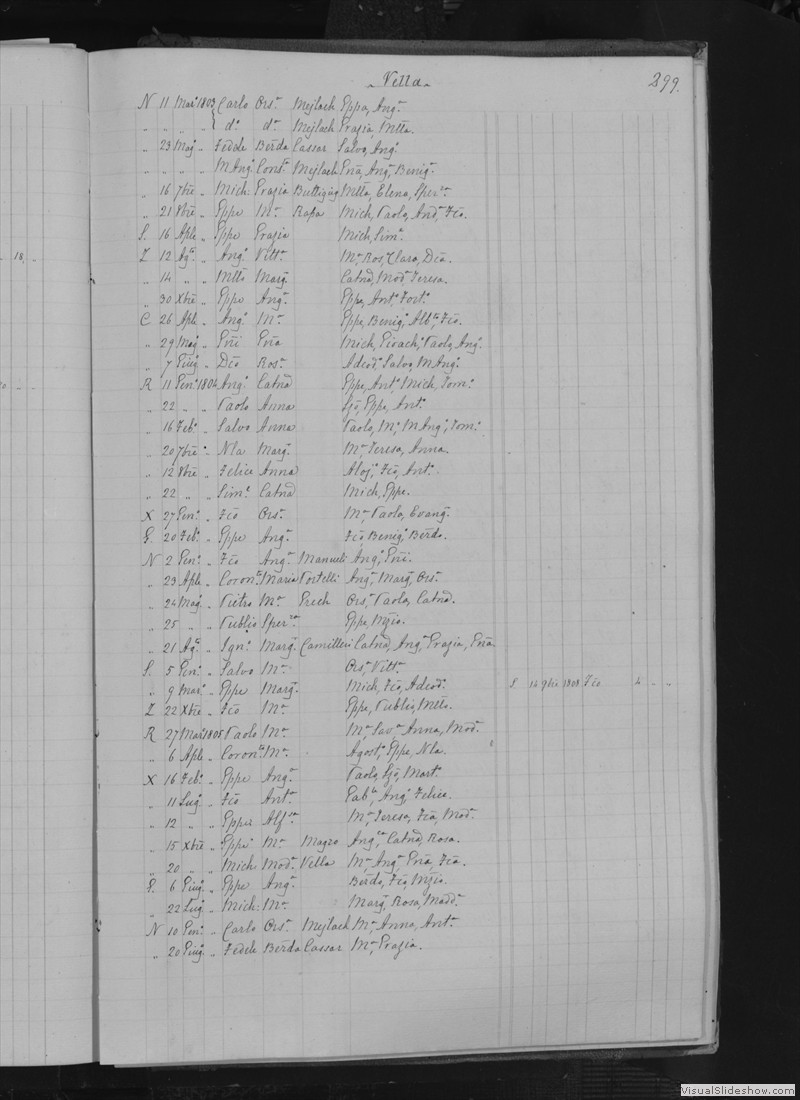 Vella
299.
N 11 Mar.o 1803 Carlo Ors.a Mejlach Eppa, Ang.a
" " " " d.o d.a Mejlach Grazia, Mtta.
" 23 Mag.o " Fedele Berda Cassar Salvo, Ang.o
" " " " M.Ang.o Const.a Mejlach Gña, Ang.a Benig.a
" 16 7bre " Mich: Grazia Buttigieg Mtta, Elena, Sper.za
" 21 8bre " Eppe M.a Rapa Mich, Paolo, And.a Fco.
S. 16 Aple " Eppe Grazia Mich, Sim.e
Z 12 Ag.to " Ang.o Vitt.a M.a Ros.a Clara, Dca.
" 14 " " Mtto Marg.a Catna, Mod.a Teresa.
" 30 Xbre " Eppe Ang.a Eppa, Ant.a Fort.a
C 26 Aple " Ang.o M.a Eppe, Benig.o Alb.to Fco.
" 29 Mag.o " Gñi Gña Mich, Paolo, Ang.o
" 7 Giug.o " Dco Ros.a Adeod.o Salvo, M.Ang.o
R 11 Gen.o 1804 Ang.o Catna Eppe, Ant.o Mich, Tom.o
" 22 " " Paolo Anna Ljo, Eppe, Ant.o
" 16 Feb.o " Salvo Anna Paolo, M.o M.Ang.o, Tom.o
" 20 7bre " Nla Marg.a M.a Teresa, Anna.
" 12 8bre " Felice Anna Aloj.o Fco, Ant.o
" 22 " " Sim.e Catna Mich, Eppe.
X 27 Gen.o " Fco Ors.a M.a Paolo, Evang.a
G. 20 Feb.o " Eppe Ang.a Fco Benig.o Berdo.
N 2 Gen.o " Fco Ang.a Manueli Ang.o Gñi.
" 23 Aple " Coron.to Maria Portelli Ang.a Marg.a Ors.a
" 24 Mag.o " Pietro M.a Grech Ors.a Paola, Catna.
" 25 " " Publio Sper.za Eppe, Mzio.
" 21 Ag.to " Ign.o Marg.a Camilleri Catna, Ang.a Grazia, Gña.
S. 5 Gen.o " Salvo M.a Ors.a Vitt.a
" 9 Mar.o " Eppe Marg.a Mich, Fco, Adeod.o S 14 9bre 1808 Fco 4 " "
Z 22 Xbre " Fco M.a Eppe, Publio, Mtto.
R 27 Mar.o 1805 Paolo M.a M.a Sav.a Anna, Mod.a
" 6 Aple " Coron.to M.a Agost.o Eppe, Nla.
X 16 Feb.o " Eppe Ang.a Paolo, Ljo, Mart.o
" 11 Lug.o " Fco Ant.a Gab.le Ang.o Felice.
" 12 " " Eppe M.a Teresa, Fca, Mod.a
" 15 Xbre " Eppe M.a Magro Ang.ca Catna, Rosa.
" 20 " " Mich Mod.a Vella M.a Ang.a Gña, Fca.
G. 6 Giug.o " Eppe Ang.a Berdo, Fco, Mzio.
" 22 Lug.o " Mich: M.a Marg.a Rosa, Madd.a
N 10 Gen.o " Carlo Ors.a Mejlach M.a Anna, Ant.a
" 20 Giug.o " Fedele Berda Cassar M.a Grazia.
18 "
VisualSlideshow.com